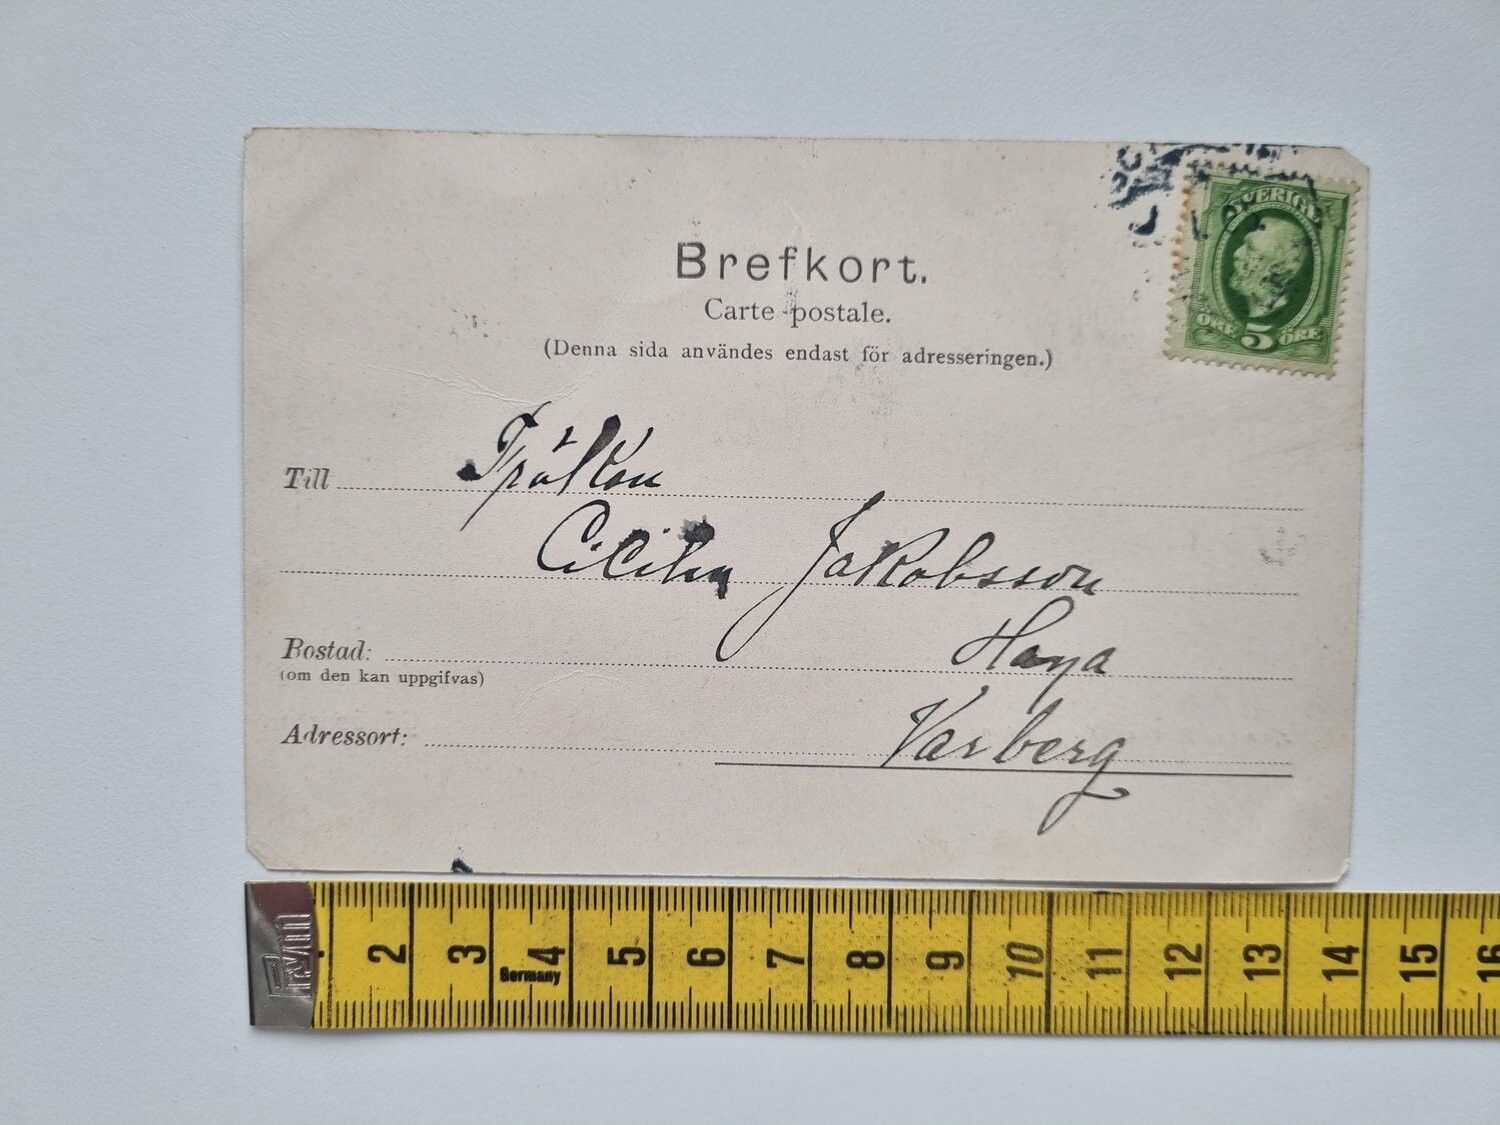 SVERIGE
ÖRE 5 ÖRE
Brefkort.
Carte postale.
(Denna sida användes endast för adresseringen.)
Till Fröken
Cicilia Jakobsson
Bostad: Haga
(om den kan uppgifvas)
Adressort: Varberg
Prym
1 2 3 4 5 6 7 8 9 10 11 12 13 14 15 16
Germany